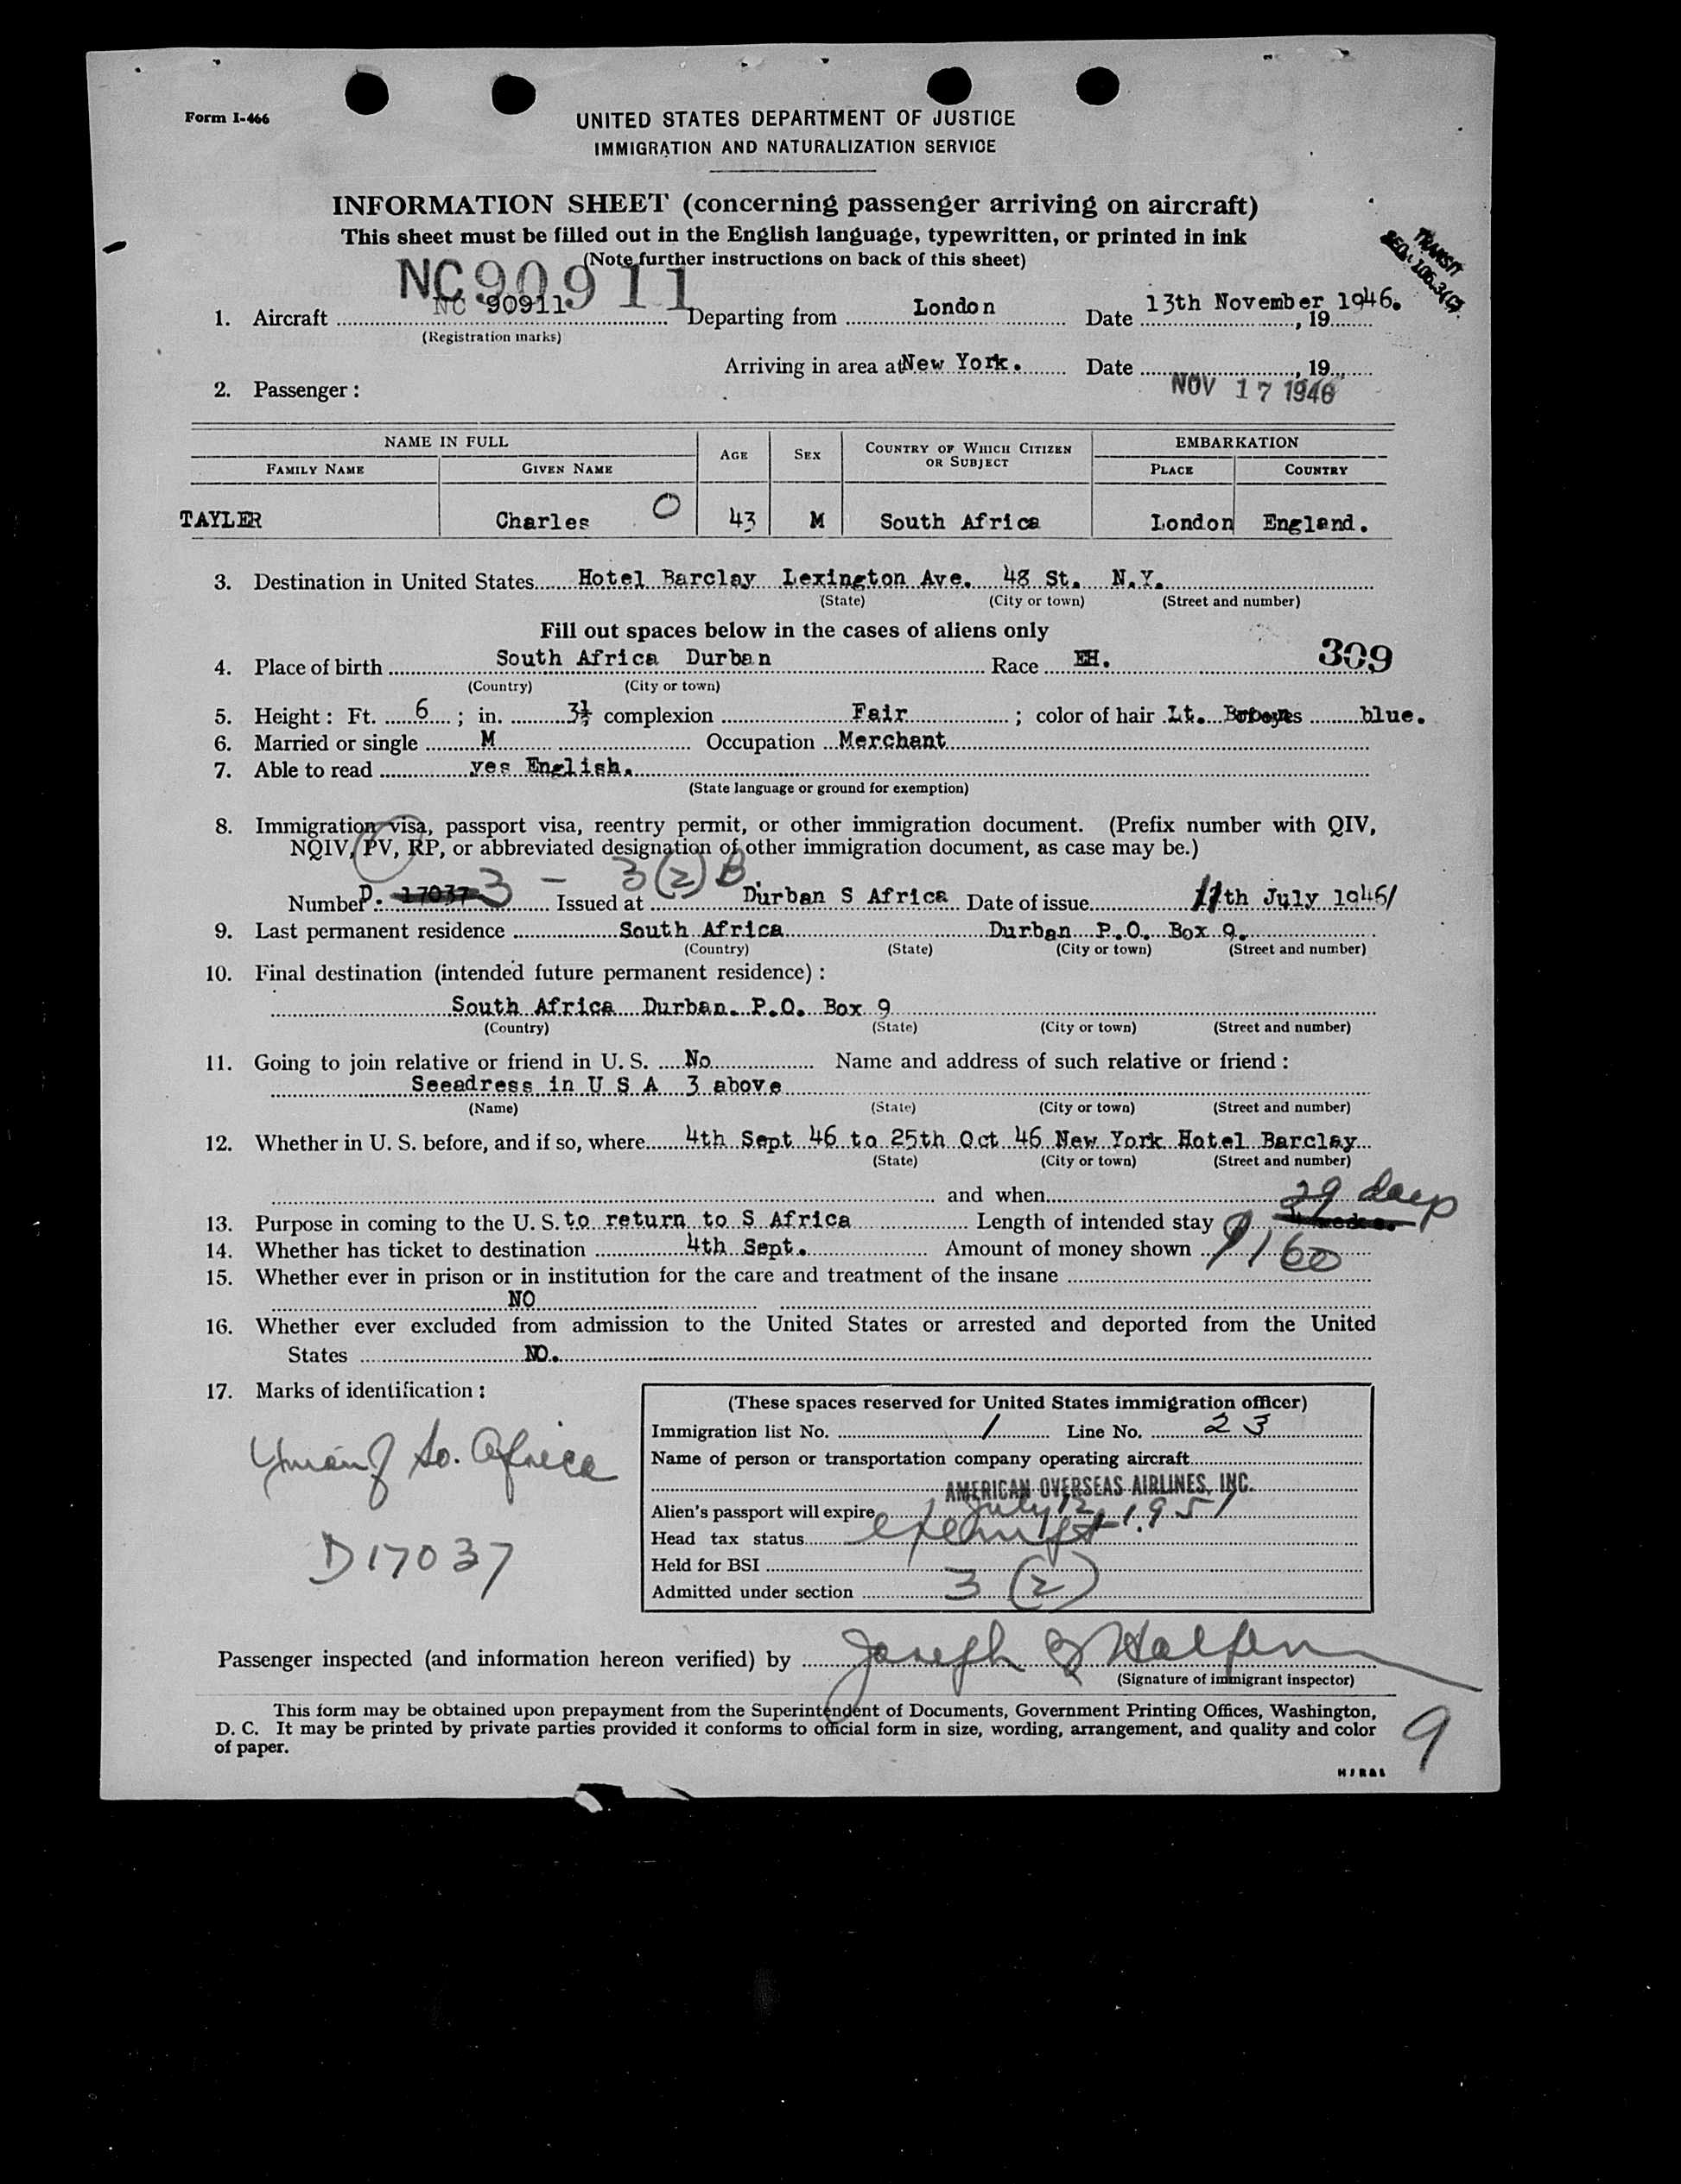 Form I-466
UNITED STATES DEPARTMENT OF JUSTICE
IMMIGRATION AND NATURALIZATION SERVICE
INFORMATION SHEET (concerning passenger arriving on aircraft)
This sheet must be filled out in the English language, typewritten, or printed in ink
(Note further instructions on back of this sheet)
TRANSIT
NC90911
1. Aircraft NC 90911 Departing from London Date 13th November 1946. , 19
(Registration marks)
Arriving in area at New York. Date , 19
2. Passenger : NOV 17 1946
NAME IN FULL AGE SEX COUNTRY OF WHICH CITIZEN OR SUBJECT EMBARKATION
FAMILY NAME GIVEN NAME PLACE COUNTRY
TAYLER Charles O 43 M South Africa London England.
3. Destination in United States Hotel Barclay Lexington Ave. 48 St. N.Y.
(State) (City or town) (Street and number)
Fill out spaces below in the cases of aliens only
309
4. Place of birth South Africa Durban Race EH.
(Country) (City or town)
5. Height : Ft. 6 ; in. 3½ complexion Fair ; color of hair Lt. eyes blue.
6. Married or single M Occupation Merchant
7. Able to read yes English.
(State language or ground for exemption)
8. Immigration visa, passport visa, reentry permit, or other immigration document. (Prefix number with QIV,
NQIV, PV, RP, or abbreviated designation of other immigration document, as case may be.)
3 - 3(2) B.
Number D. 17037 Issued at Durban S Africa Date of issue 11th July 1946/
9. Last permanent residence South Africa Durban P.O. Box 9.
(Country) (State) (City or town) (Street and number)
10. Final destination (intended future permanent residence) :
South Africa Durban. P.O. Box 9
(Country) (State) (City or town) (Street and number)
11. Going to join relative or friend in U. S. No Name and address of such relative or friend :
Seeadress in U S A 3 above
(Name) (State) (City or town) (Street and number)
12. Whether in U. S. before, and if so, where 4th Sept 46 to 25th Oct 46 New York Hotel Barclay
(State) (City or town) (Street and number)
and when 29 days
13. Purpose in coming to the U. S. to return to S Africa Length of intended stay
14. Whether has ticket to destination 4th Sept. Amount of money shown $160
15. Whether ever in prison or in institution for the care and treatment of the insane
NO
16. Whether ever excluded from admission to the United States or arrested and deported from the United
States NO.
17. Marks of identification :
So. Africa
D17037
(These spaces reserved for United States immigration officer)
Immigration list No. 1 Line No. 23
Name of person or transportation company operating aircraft
AMERICAN OVERSEAS AIRLINES, INC.
Alien's passport will expire July 12, 1951
Head tax status exempt
Held for BSI
Admitted under section 3 (2)
Passenger inspected (and information hereon verified) by Joseph Halfern
(Signature of immigrant inspector)
This form may be obtained upon prepayment from the Superintendent of Documents, Government Printing Offices, Washington,
D. C. It may be printed by private parties provided it conforms to official form in size, wording, arrangement, and quality and color
of paper.
9